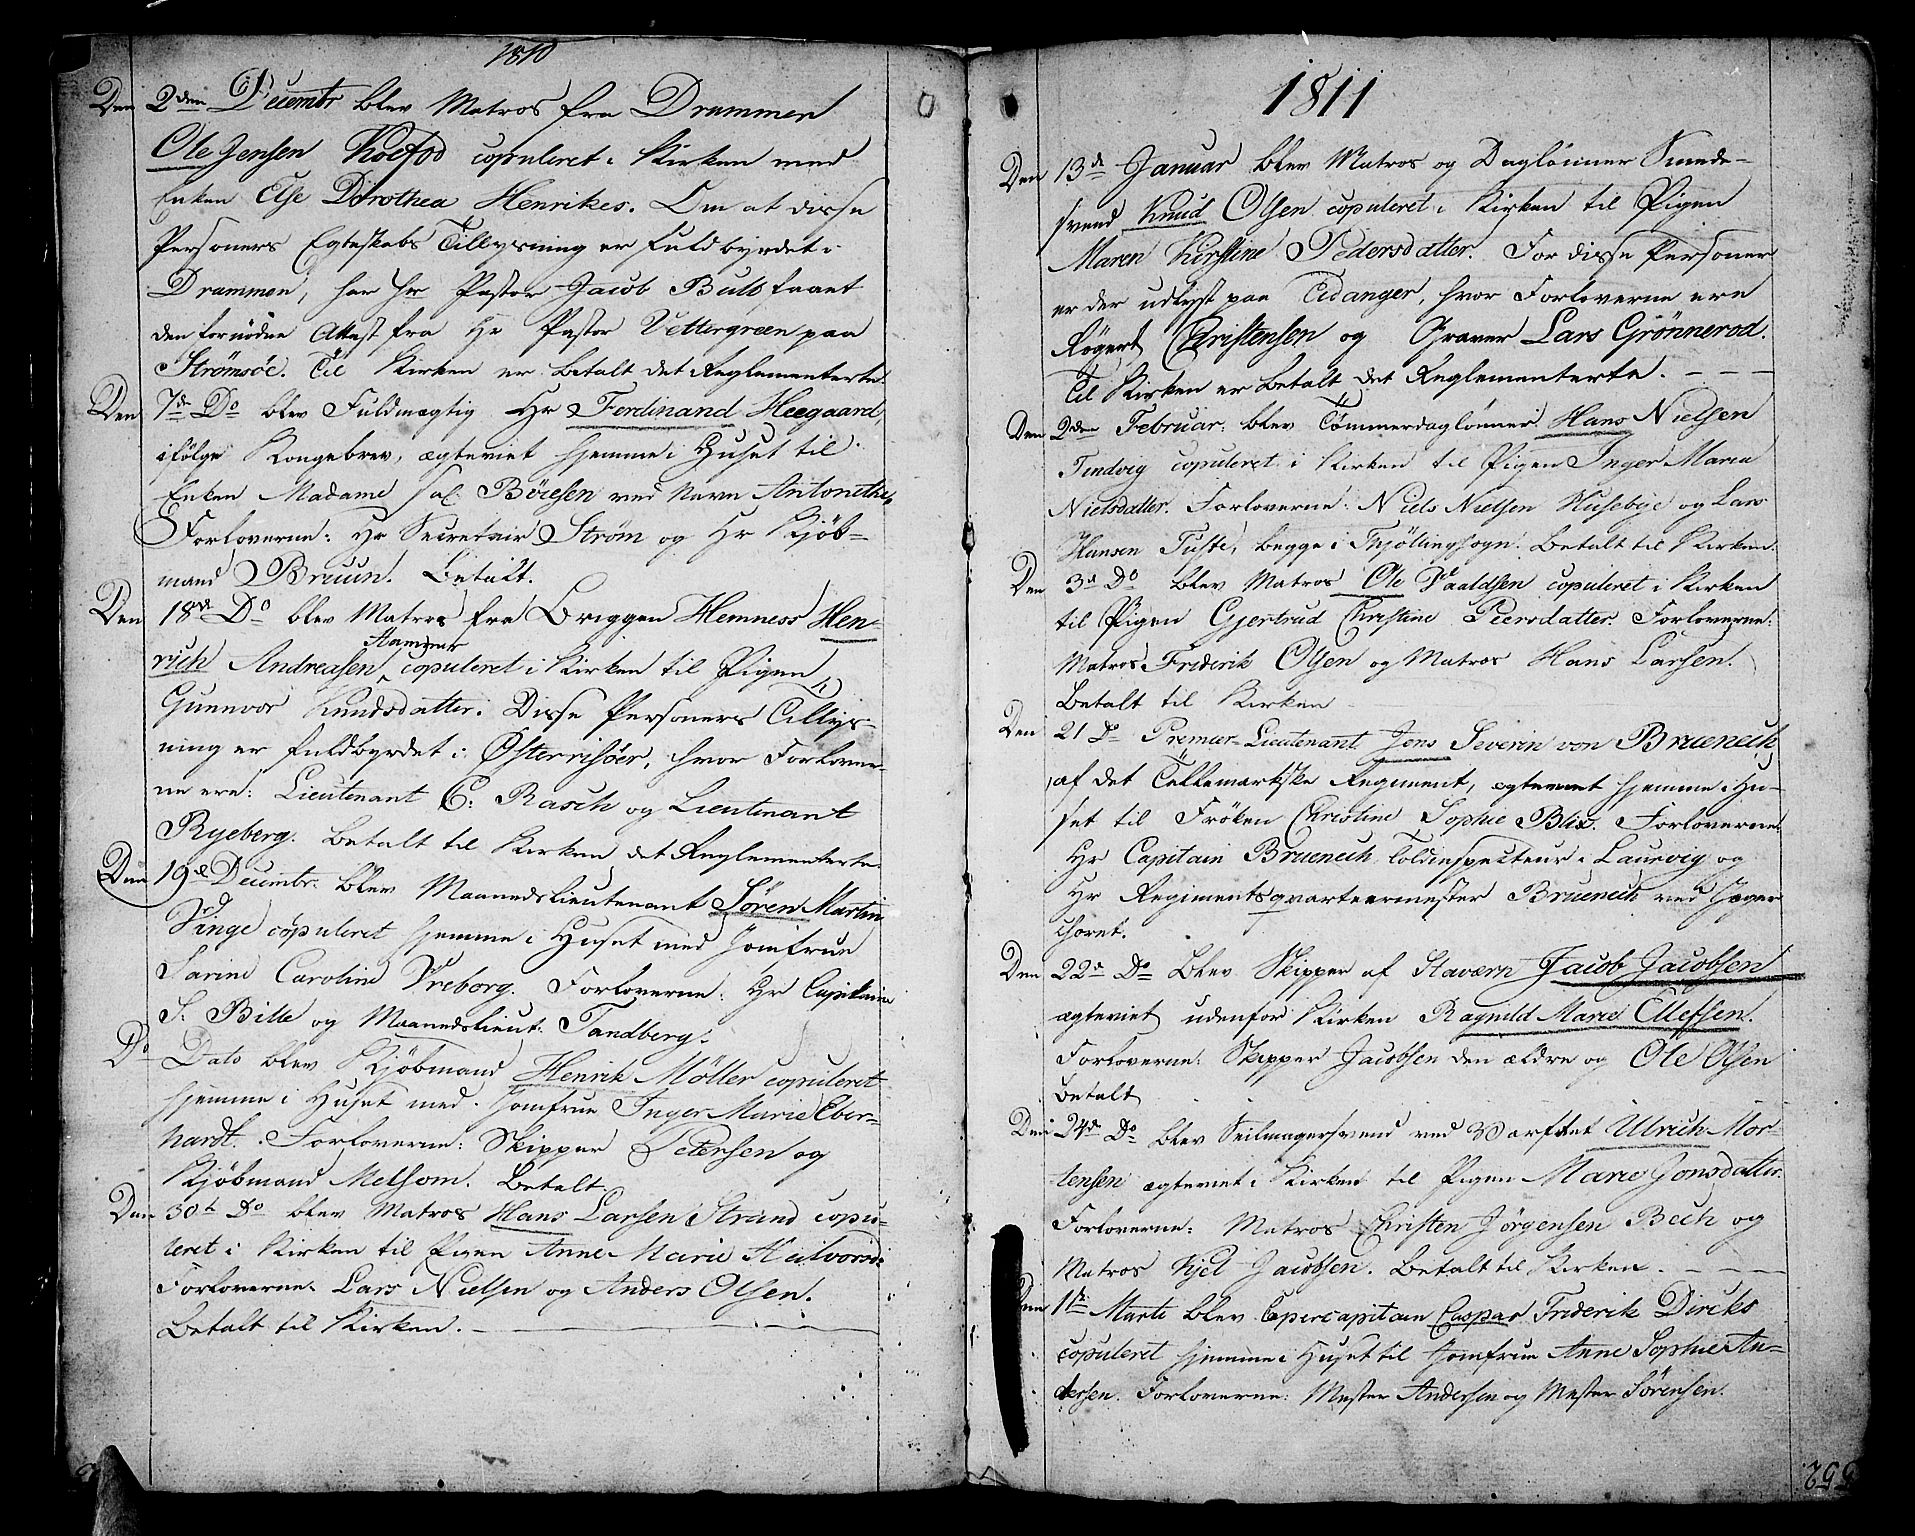 1810
Den 2den Decembr blev Matros fra Drammen
Ole Jensen Koefod copuleret i Kirken med
Enken Else Dorothea Henrikes. Om at disse
Personers Egteskabs Tillysning er fuldbyrdet i
Drammen, har Hr Pastor Jacob Bull faaet
den fornødne Attest fra Hr Pastor Vettergreen paa
Strømsøe. Til Kirken er betalt det Reglementerte.
Den 7de Do blev Fuldmægtig Hr Ferdinand Heegaard,
ifølge Kongebrev, ægteviet hjemme i Huset til
Enken Madame sal: Böiesen ved Navn Antonethe,
Forloverne: Hr Secretair Strøm og Hr Kjöb-
mand Bruun. Betalt.
Den 18de Do blev Matros fra Briggen Hemness Hen-
rich Andreasen Hammer copuleret i Kirken til Pigen
Gunnvor Knudsdatter. Disse Personers Tillys-
ning er fuldbyrdet i Østerrisöer, hvor Forlover-
ne ere: Lieutenant C: Rasch og Lieutenant
Ryeberg. Betalt til Kirken det Reglementerte
Den 19de Decembr. blev Maanedslieutenant Søren Martin
Vinge copuleret hjemme i Huset med Jomfrue
Sarine Caroline Vreborg. Forloverne: Hr Capitaine
S. Bille og Maanedslieut: Tandberg.
Do Dato blev Kjöbmand Henrik Möller copuleret
hjemme i Huset med Jomfrue Inger Marie Eber-
hardt. Forloverne: Skipper Petersen og
Kjöbmand Melsom. Betalt
Den 30te Do blev Matros Hans Larsen Strand copu-
leret i Kirken til Pigen Anne Marie Halvorsd:
Forloverne. Lars Nielsen og Anders Olsen.
Betalt til Kirken.
1811
Den 13de Januar blev Matros og Daglønner Smede-
svend Knud Olsen copuleret i Kirken til Pigen
Maren Kirstine Pedersdatter. For disse Personer
er der udlyst paa Eidanger, hvor Forloverne ere
Rögert Christensen og Graver Lars Grönnerod.
Til Kirken er betalt det Reglementerte.
Den 2den Februar: blev Tømmerdaglønner Hans Nielsen
Tindvig copuleret i Kirken til Pigen Inger Maria
Nielsdatter. Forloverne: Niels Nielsen Husebye og Lars
Hansen Tuste, begge i Thjöllingsogn. Betalt til Kirken.
Den 3de Do blev Matros Ole Vaaldsen copuleret i Kirken
til Pigen Gjertrud Christine Peersdatter. Forloverne:
Matros Friderik Olsen og Matros Hans Larsen.
Betalt til Kirken
Den 21 Do Premier-Lieutenant Jens Severin von Bruenech,
af det Tellemarkske Regiment, ægteviet hjemme i Hu-
set til Fröken Christine Sophie Blix. Forloverne:
Hr Capitain Bruenech, Toldinspecteur i Laurvig og
Hr Regimentsqvarteermester Bruenech ved Jæger
choret.
Den 22de Do blev Skipper af Stavern Jacob Jacobsen
ægteviet udenfor Kirken Ragnild Marie Ellefsen.
Forloverne: Skipper Jacobsen den ældre og Ole Olsen
Betalt
Den 24de Do blev Seilmagersvend ved Værftet Ulrich Mor-
tensen ægteviet i Kirken til Pigen Marie Jonsdatter.
Forloverne: Matros Christen Jörgensen Bech og
Matros Kjel Jacobsen. Betalt til Kirken.
Den 1ste Marti blev Capercapitain Caspar Friderik Dircks
copuleret hjemme i Huset til Jomfrue Anne Sophie An-
dersen. Forloverne: Mester Andersen og Mester Sörensen.